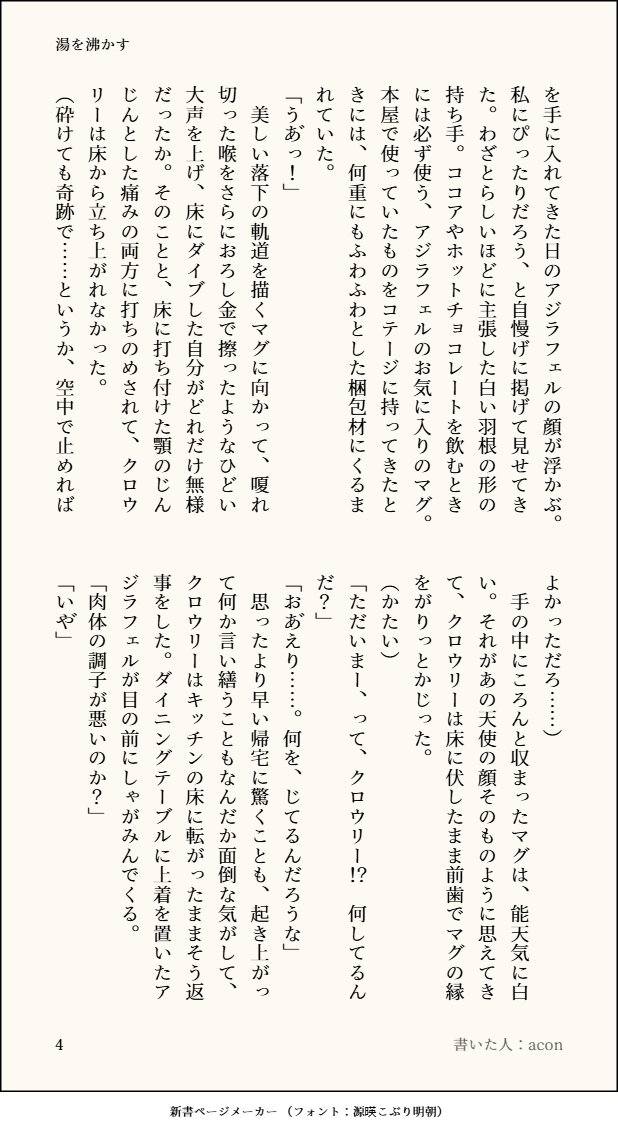 湯を沸かす
を手に入れてきた日のアジラフェルの顔が浮かぶ。
私にぴったりだろう、と自慢げに掲げて見せてき
た。わざとらしいほどに主張した白い羽根の形の
持ち手。ココアやホットチョコレートを飲むとき
には必ず使う、アジラフェルのお気に入りのマグ。
本屋で使っていたものをコテージに持ってきたと
きには、何重にもふわふわとした梱包材にくるま
れていた。
「うあ゙っ！」
　美しい落下の軌道を描くマグに向かって、嗄れ
切った喉をさらにおろし金で擦ったようなひどい
大声を上げ、床にダイブした自分がどれだけ無様
だったか。そのことと、床に打ち付けた顎のじん
じんとした痛みの両方に打ちのめされて、クロウ
リーは床から立ち上がれなかった。
（砕けても奇跡で……というか、空中で止めれば
よかっただろ……）
　手の中にころんと収まったマグは、能天気に白
い。それがあの天使の顔そのものように思えてき
て、クロウリーは床に伏したまま前歯でマグの縁
をがりっとかじった。
（かたい）
「ただいまー、って、クロウリー!?　何してるん
だ？」
「おあ゙えり……。何を、じてるんだろうな」
　思ったより早い帰宅に驚くことも、起き上がっ
て何か言い繕うこともなんだか面倒な気がして、
クロウリーはキッチンの床に転がったままそう返
事をした。ダイニングテーブルに上着を置いたア
ジラフェルが目の前にしゃがみんでくる。
「肉体の調子が悪いのか？」
「いや゙」
4
書いた人：acon
新書ページメーカー（フォント：源暎こぶり明朝）